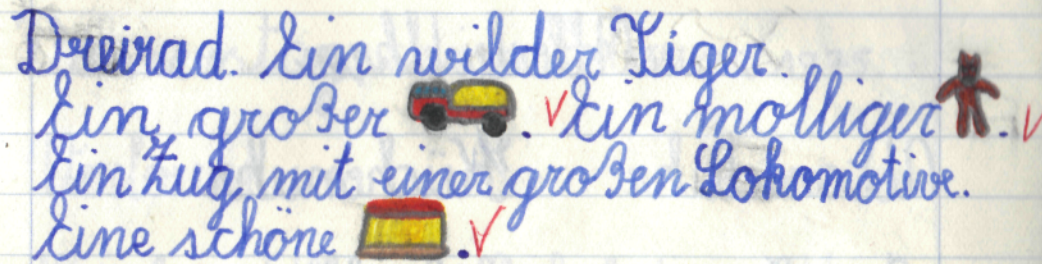 Dreirad. Ein wilder Tiger.
Ein großer . Ein molliger .
Ein Zug mit einer großen Lokomotive.
Eine schöne .